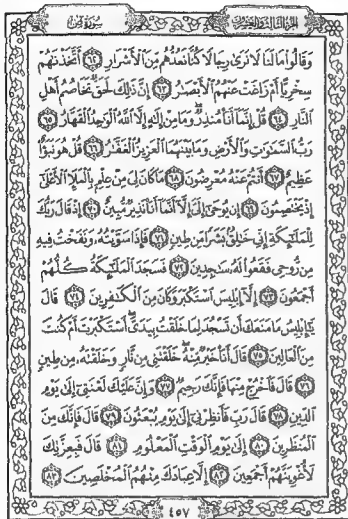 سورة ص
الجزء الثالث والعشرون
وَقَالُوا۟ مَا لَنَا لَا نَرَىٰ رِجَالًا كُنَّا نَعُدُّهُم مِّنَ ٱلْأَشْرَارِ ٦٢ أَتَّخَذْنَٰهُمْ
سِخْرِيًّا أَمْ زَاغَتْ عَنْهُمُ ٱلْأَبْصَٰرُ ٦٣ إِنَّ ذَٰلِكَ لَحَقٌّ تَخَاصُمُ أَهْلِ
ٱلنَّارِ ٦٤ قُلْ إِنَّمَآ أَنَا۠ مُنذِرٌ وَمَا مِنْ إِلَٰهٍ إِلَّا ٱللَّهُ ٱلْوَٰحِدُ ٱلْقَهَّارُ ٦٥
رَبُّ ٱلسَّمَٰوَٰتِ وَٱلْأَرْضِ وَمَا بَيْنَهُمَا ٱلْعَزِيزُ ٱلْغَفَّٰرُ ٦٦ قُلْ هُوَ نَبَؤٌا۟
عَظِيمٌ ٦٧ أَنتُمْ عَنْهُ مُعْرِضُونَ ٦٨ مَا كَانَ لِىَ مِنْ عِلْمٍۭ بِٱلْمَلَإِ ٱلْأَعْلَىٰٓ
إِذْ يَخْتَصِمُونَ ٦٩ إِن يُوحَىٰٓ إِلَىَّ إِلَّآ أَنَّمَآ أَنَا۠ نَذِيرٌ مُّبِينٌ ٧٠ إِذْ قَالَ رَبُّكَ
لِلْمَلَٰٓئِكَةِ إِنِّى خَٰلِقٌۢ بَشَرًا مِّن طِينٍ ٧١ فَإِذَا سَوَّيْتُهُۥ وَنَفَخْتُ فِيهِ
مِن رُّوحِى فَقَعُوا۟ لَهُۥ سَٰجِدِينَ ٧٢ فَسَجَدَ ٱلْمَلَٰٓئِكَةُ كُلُّهُمْ
أَجْمَعُونَ ٧٣ إِلَّآ إِبْلِيسَ ٱسْتَكْبَرَ وَكَانَ مِنَ ٱلْكَٰفِرِينَ ٧٤ قَالَ
يَٰٓإِبْلِيسُ مَا مَنَعَكَ أَن تَسْجُدَ لِمَا خَلَقْتُ بِيَدَىَّ أَسْتَكْبَرْتَ أَمْ كُنتَ
مِنَ ٱلْعَالِينَ ٧٥ قَالَ أَنَا۠ خَيْرٌ مِّنْهُ خَلَقْتَنِى مِن نَّارٍ وَخَلَقْتَهُۥ مِن طِينٍ
٧٦ قَالَ فَٱخْرُجْ مِنْهَا فَإِنَّكَ رَجِيمٌ ٧٧ وَإِنَّ عَلَيْكَ لَعْنَتِىٓ إِلَىٰ يَوْمِ
ٱلدِّينِ ٧٨ قَالَ رَبِّ فَأَنظِرْنِىٓ إِلَىٰ يَوْمِ يُبْعَثُونَ ٧٩ قَالَ فَإِنَّكَ مِنَ
ٱلْمُنظَرِينَ ٨٠ إِلَىٰ يَوْمِ ٱلْوَقْتِ ٱلْمَعْلُومِ ٨١ قَالَ فَبِعِزَّتِكَ
لَأُغْوِيَنَّهُمْ أَجْمَعِينَ ٨٢ إِلَّا عِبَادَكَ مِنْهُمُ ٱلْمُخْلَصِينَ ٨٣
٤٥٧